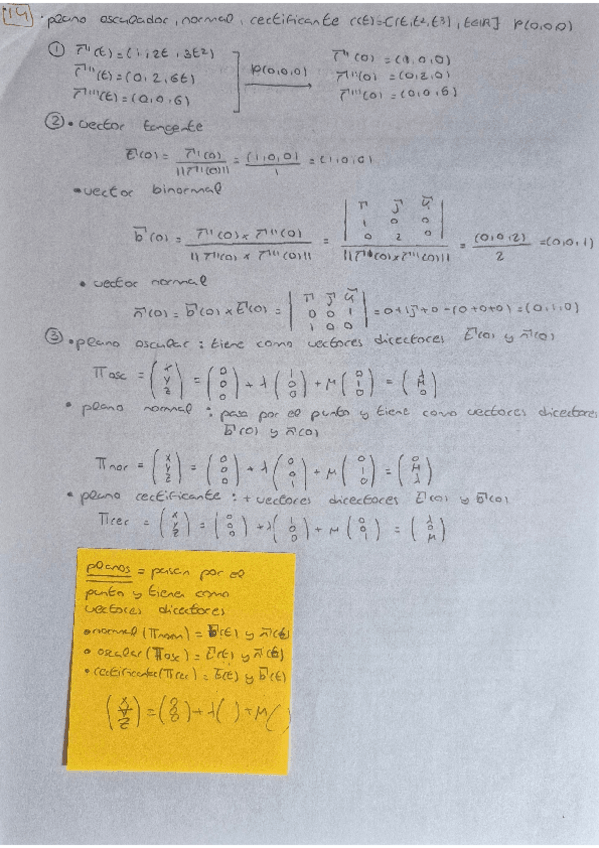 19 · plano osculador, normal, rectificante r(t)=[(t,t²,t³), t∈ℝ] P(0,0,0)
① r⃗'(t)=(1,2t,3t²)
r⃗''(t)=(0,2,6t)
r⃗'''(t)=(0,0,6)
P(0,0,0)
r⃗'(0)=(1,0,0)
r⃗''(0)=(0,2,0)
r⃗'''(0)=(0,0,6)
② • vector tangente
t⃗(0) = r⃗'(0) / ||r⃗'(0)|| = (1,0,0) / 1 = (1,0,0)
• vector binormal
b⃗(0) = r⃗'(0) x r⃗''(0) / ||r⃗'(0) x r⃗''(0)|| = | i⃗ j⃗ k⃗ ; 1 0 0 ; 0 2 0 | / ||r⃗'(0)x r⃗''(0)|| = (0,0,2) / 2 = (0,0,1)
• vector normal
n⃗(0) = b⃗(0) x t⃗(0) = | i⃗ j⃗ k⃗ ; 0 0 1 ; 1 0 0 | = 0+1j⃗+0-(0+0+0) = (0,1,0)
③ • plano oscular : tiene como vectores directores t⃗(0) y n⃗(0)
Πosc = (x y z) = (0 0 0) + λ (1 0 0) + μ (0 1 0) = (λ μ 0)
• plano normal : pasa por el punto y tiene como vectores directores
b⃗(0) y n⃗(0)
Πnor = (x y z) = (0 0 0) + λ (0 0 1) + μ (0 1 0) = (0 μ λ)
• plano rectificante : + vectores directores t⃗(0) y b⃗(0)
Πrec = (x y z) = (0 0 0) + λ (1 0 0) + μ (0 0 1) = (λ 0 μ)
planos = pasan por el
punto y tienen como
vectores directores
• normal (Πnorm) = b⃗(t) y n⃗(t)
• oscular (Πosc) = t⃗(t) y n⃗(t)
• rectificante (Πrec) = t⃗(t) y b⃗(t)
(x y z) = (0 0 0) + λ( ) + μ( )